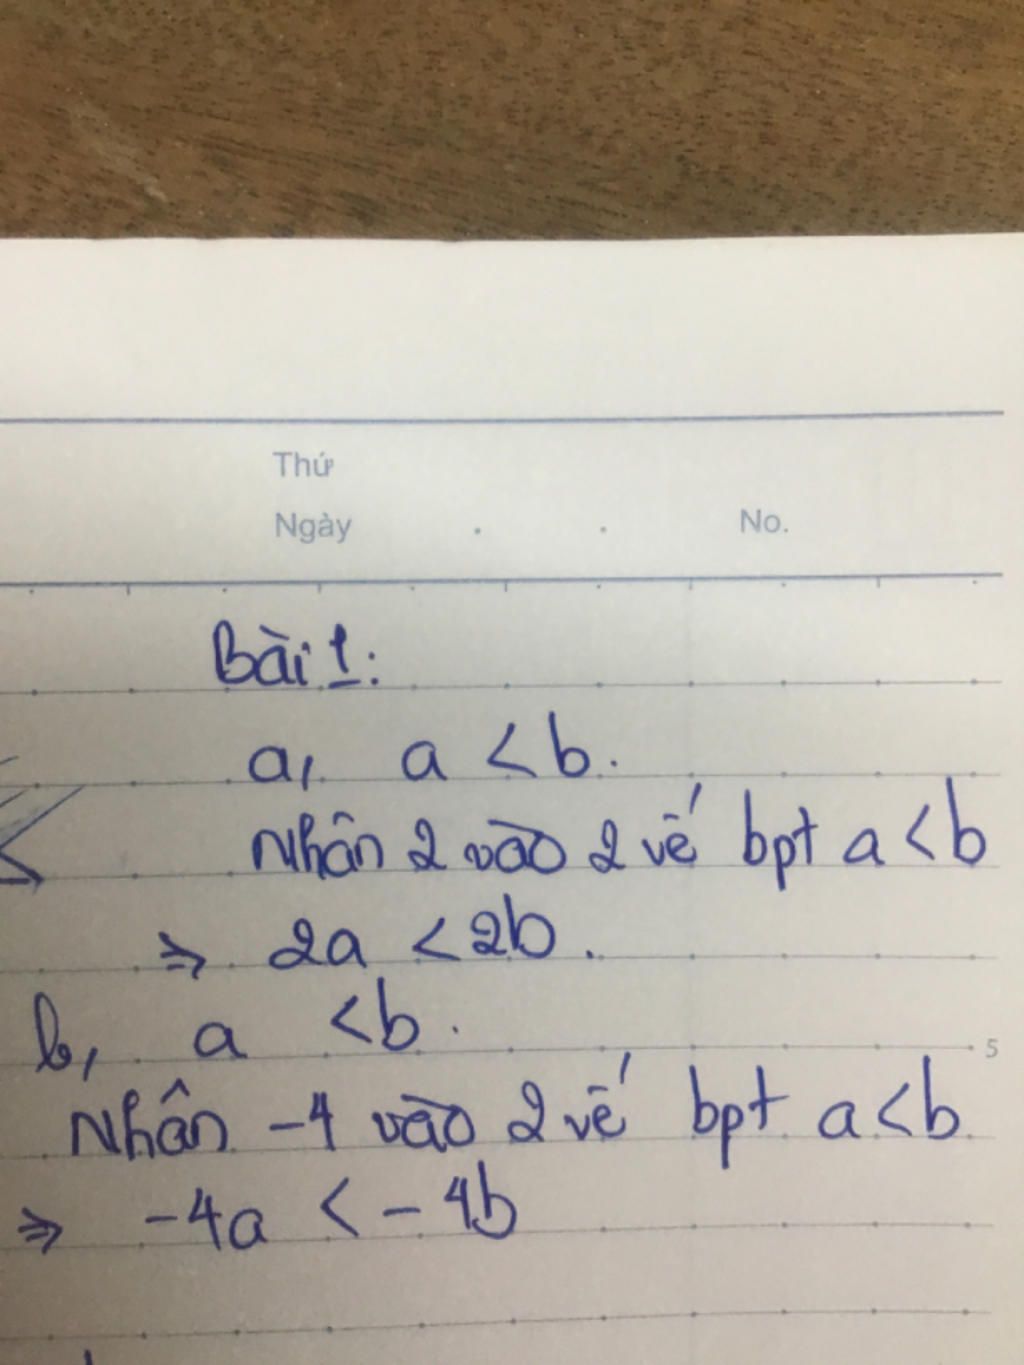 Thứ
Ngày . . No.
Bài 1:
a, a < b.
Nhân 2 vào 2 vế bpt a < b
⇒ 2a < 2b.
b, a < b.
5
Nhân -4 vào 2 vế bpt a < b
⇒ -4a < -4b